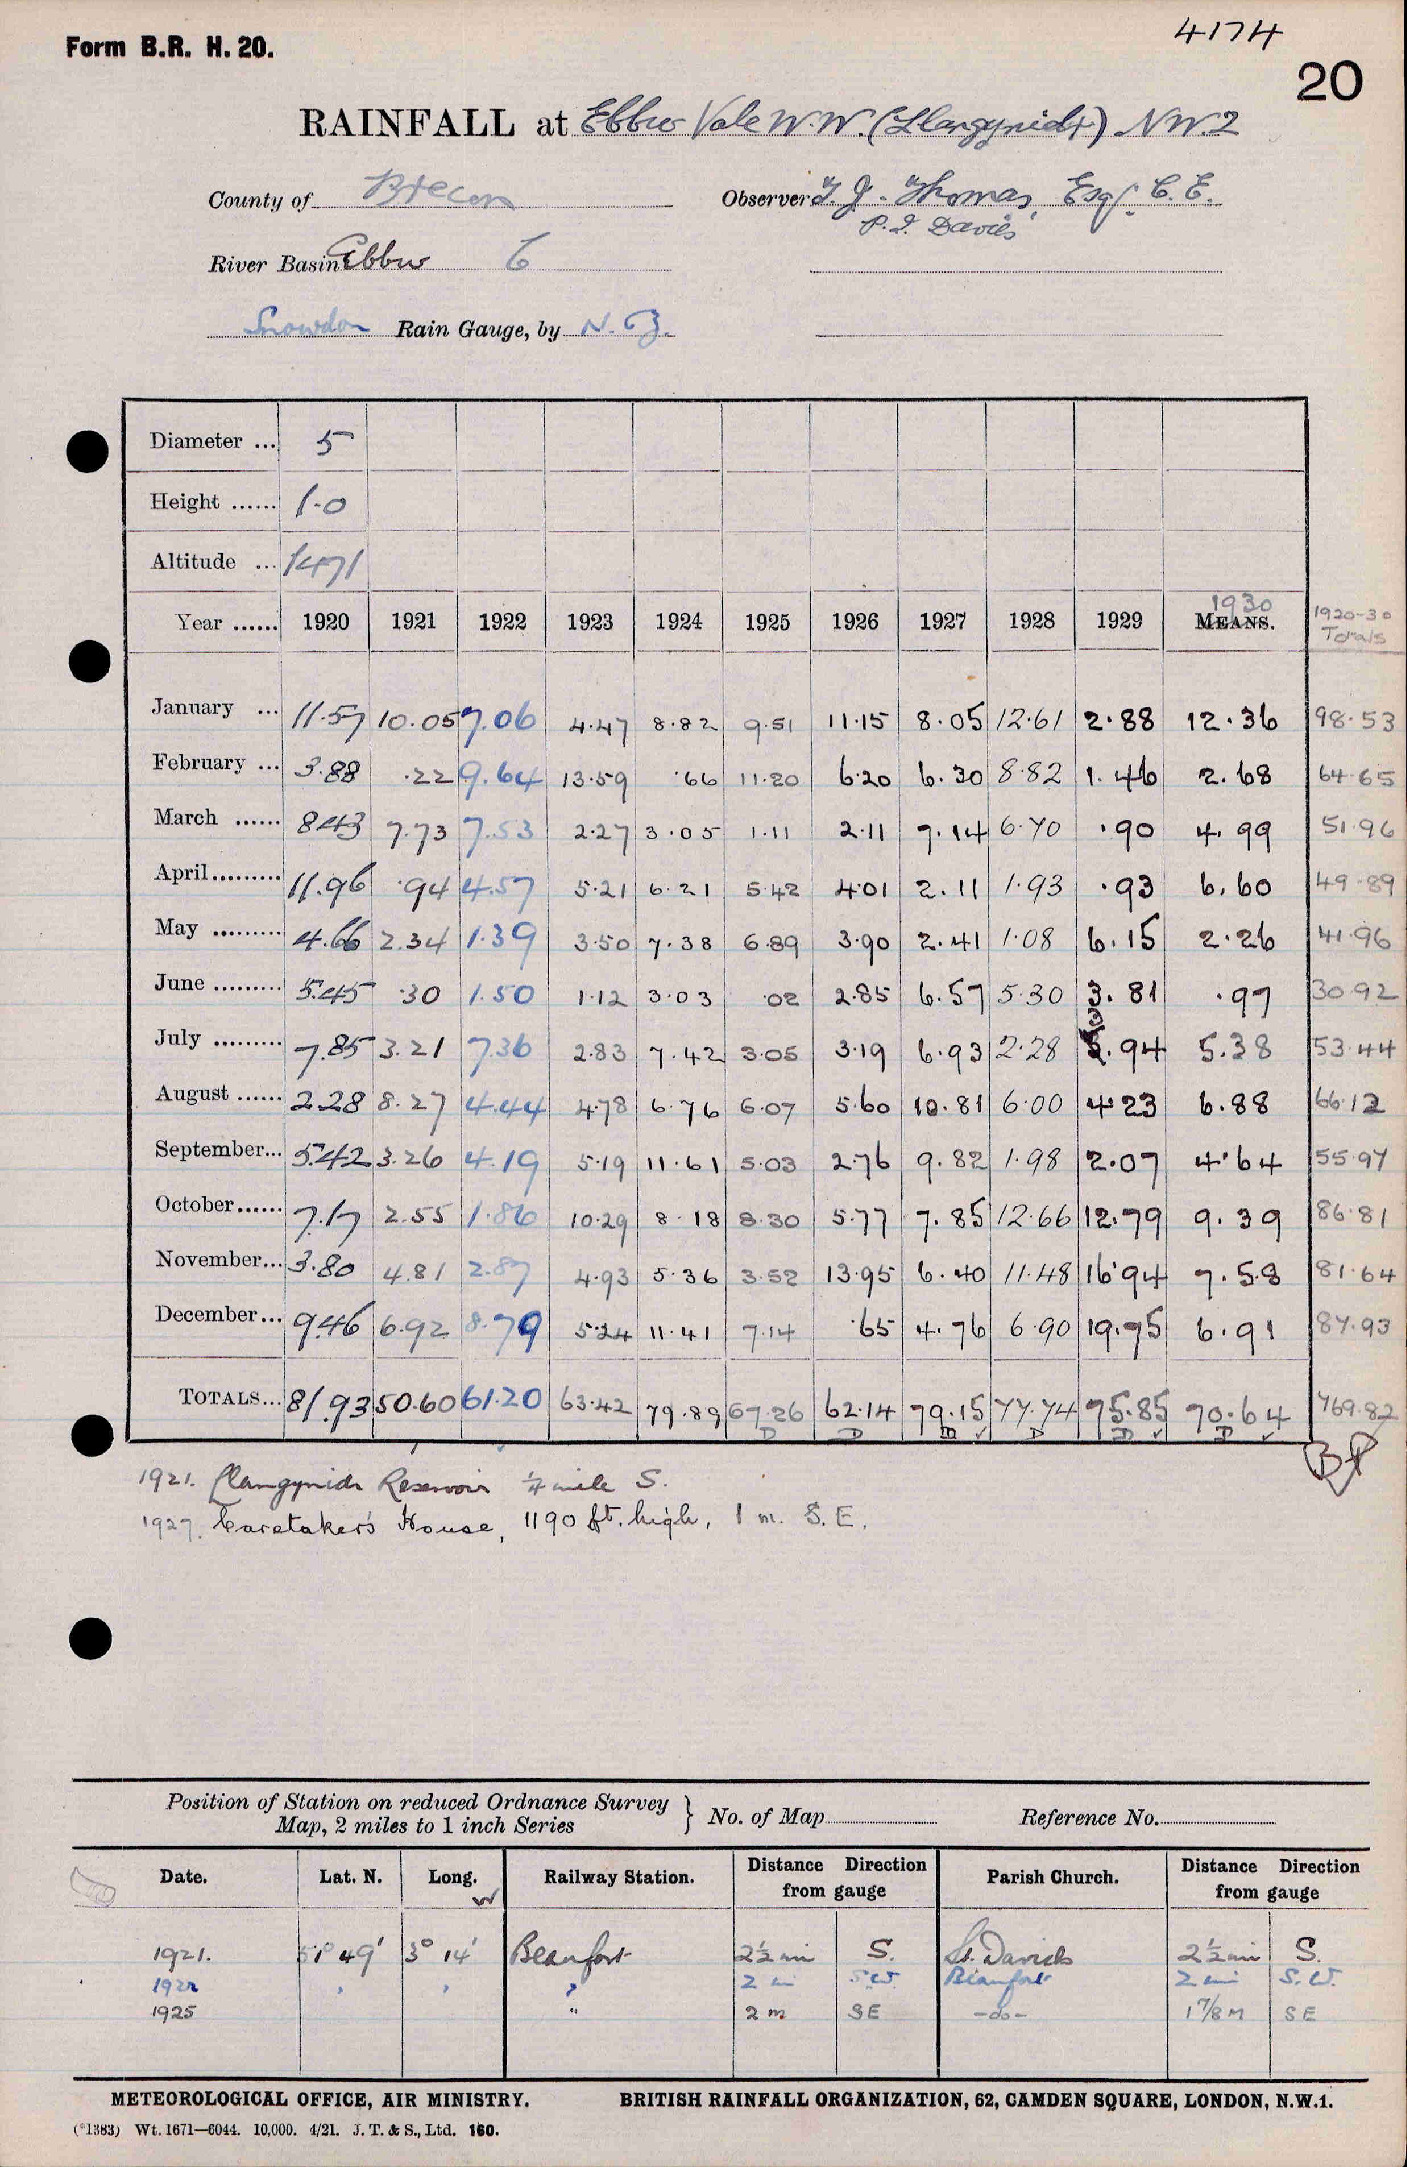 Form B.R. H. 20.
4174
20
RAINFALL at Ebbw Vale W.W. (Llangynidr) N.W.2
County of Brecon Observer T. J. Thomas, Esq. C.E.
P. I. Davies
River Basin Ebbw 6
Snowdon Rain Gauge, by N. & Z.
Diameter ... 5
Height ...... 1.0
Altitude ... 1471
Year ...... 1920 1921 1922 1923 1924 1925 1926 1927 1928 1929 1930 MEANS. 1920-30 Totals
January ... 11.57 10.05 7.06 4.47 8.82 9.51 11.15 8.05 12.61 2.88 12.36 98.53
February ... 3.88 .22 9.64 13.59 .66 11.20 6.20 6.30 8.82 1.46 2.68 64.65
March ...... 8.43 7.73 7.53 2.27 3.05 1.11 2.11 7.14 6.70 .90 4.99 51.96
April ......... 11.96 .94 4.57 5.21 6.21 5.42 4.01 2.11 1.93 .93 6.60 49.89
May ......... 4.66 2.34 1.39 3.50 7.38 6.89 3.90 2.41 1.08 6.15 2.26 41.96
June ......... 5.45 .30 1.50 1.12 3.03 .02 2.85 6.57 5.30 3.81 .97 30.92
July ......... 7.85 3.21 7.36 2.83 7.42 3.05 3.19 6.93 2.28 3.94 5.38 53.44
August ...... 2.28 8.27 4.44 4.78 6.76 6.07 5.60 10.81 6.00 4.23 6.88 66.12
September... 5.42 3.26 4.19 5.19 11.61 5.03 2.76 9.82 1.98 2.07 4.64 55.97
October...... 7.17 2.55 1.86 10.29 8.18 8.30 5.77 7.85 12.66 12.79 9.39 86.81
November... 3.80 4.81 2.87 4.93 5.36 3.52 13.95 6.40 11.48 16.94 7.58 81.64
December... 9.46 6.92 8.79 5.24 11.41 7.14 .65 4.76 6.90 19.75 6.91 87.93
TOTALS... 81.93 50.60 61.20 63.42 79.89 67.26 62.14 79.15 77.74 75.85 70.64 769.82
D D D D D D
1921. Llangynidr Reservoir ¼ mile S.
1927. Caretaker's House, 1190 ft. high, 1 m. S.E.
Position of Station on reduced Ordnance Survey Map, 2 miles to 1 inch Series } No. of Map Reference No.
Date. Lat. N. Long. W Railway Station. Distance Direction from gauge Parish Church. Distance Direction from gauge
1921. 51° 49' 3° 14' Beaufort 2½ mi S. St. Davids 2½ mi S.
1922 " " " 2 mi S.W. Beaufort 2 mi S.W.
1925 " 2 m. SE -do- 1 7/8 M SE
METEOROLOGICAL OFFICE, AIR MINISTRY. BRITISH RAINFALL ORGANIZATION, 62, CAMDEN SQUARE, LONDON, N.W.1.
(*1383) Wt. 1671—6044. 10,000. 4/21. J. T. & S., Ltd. 160.